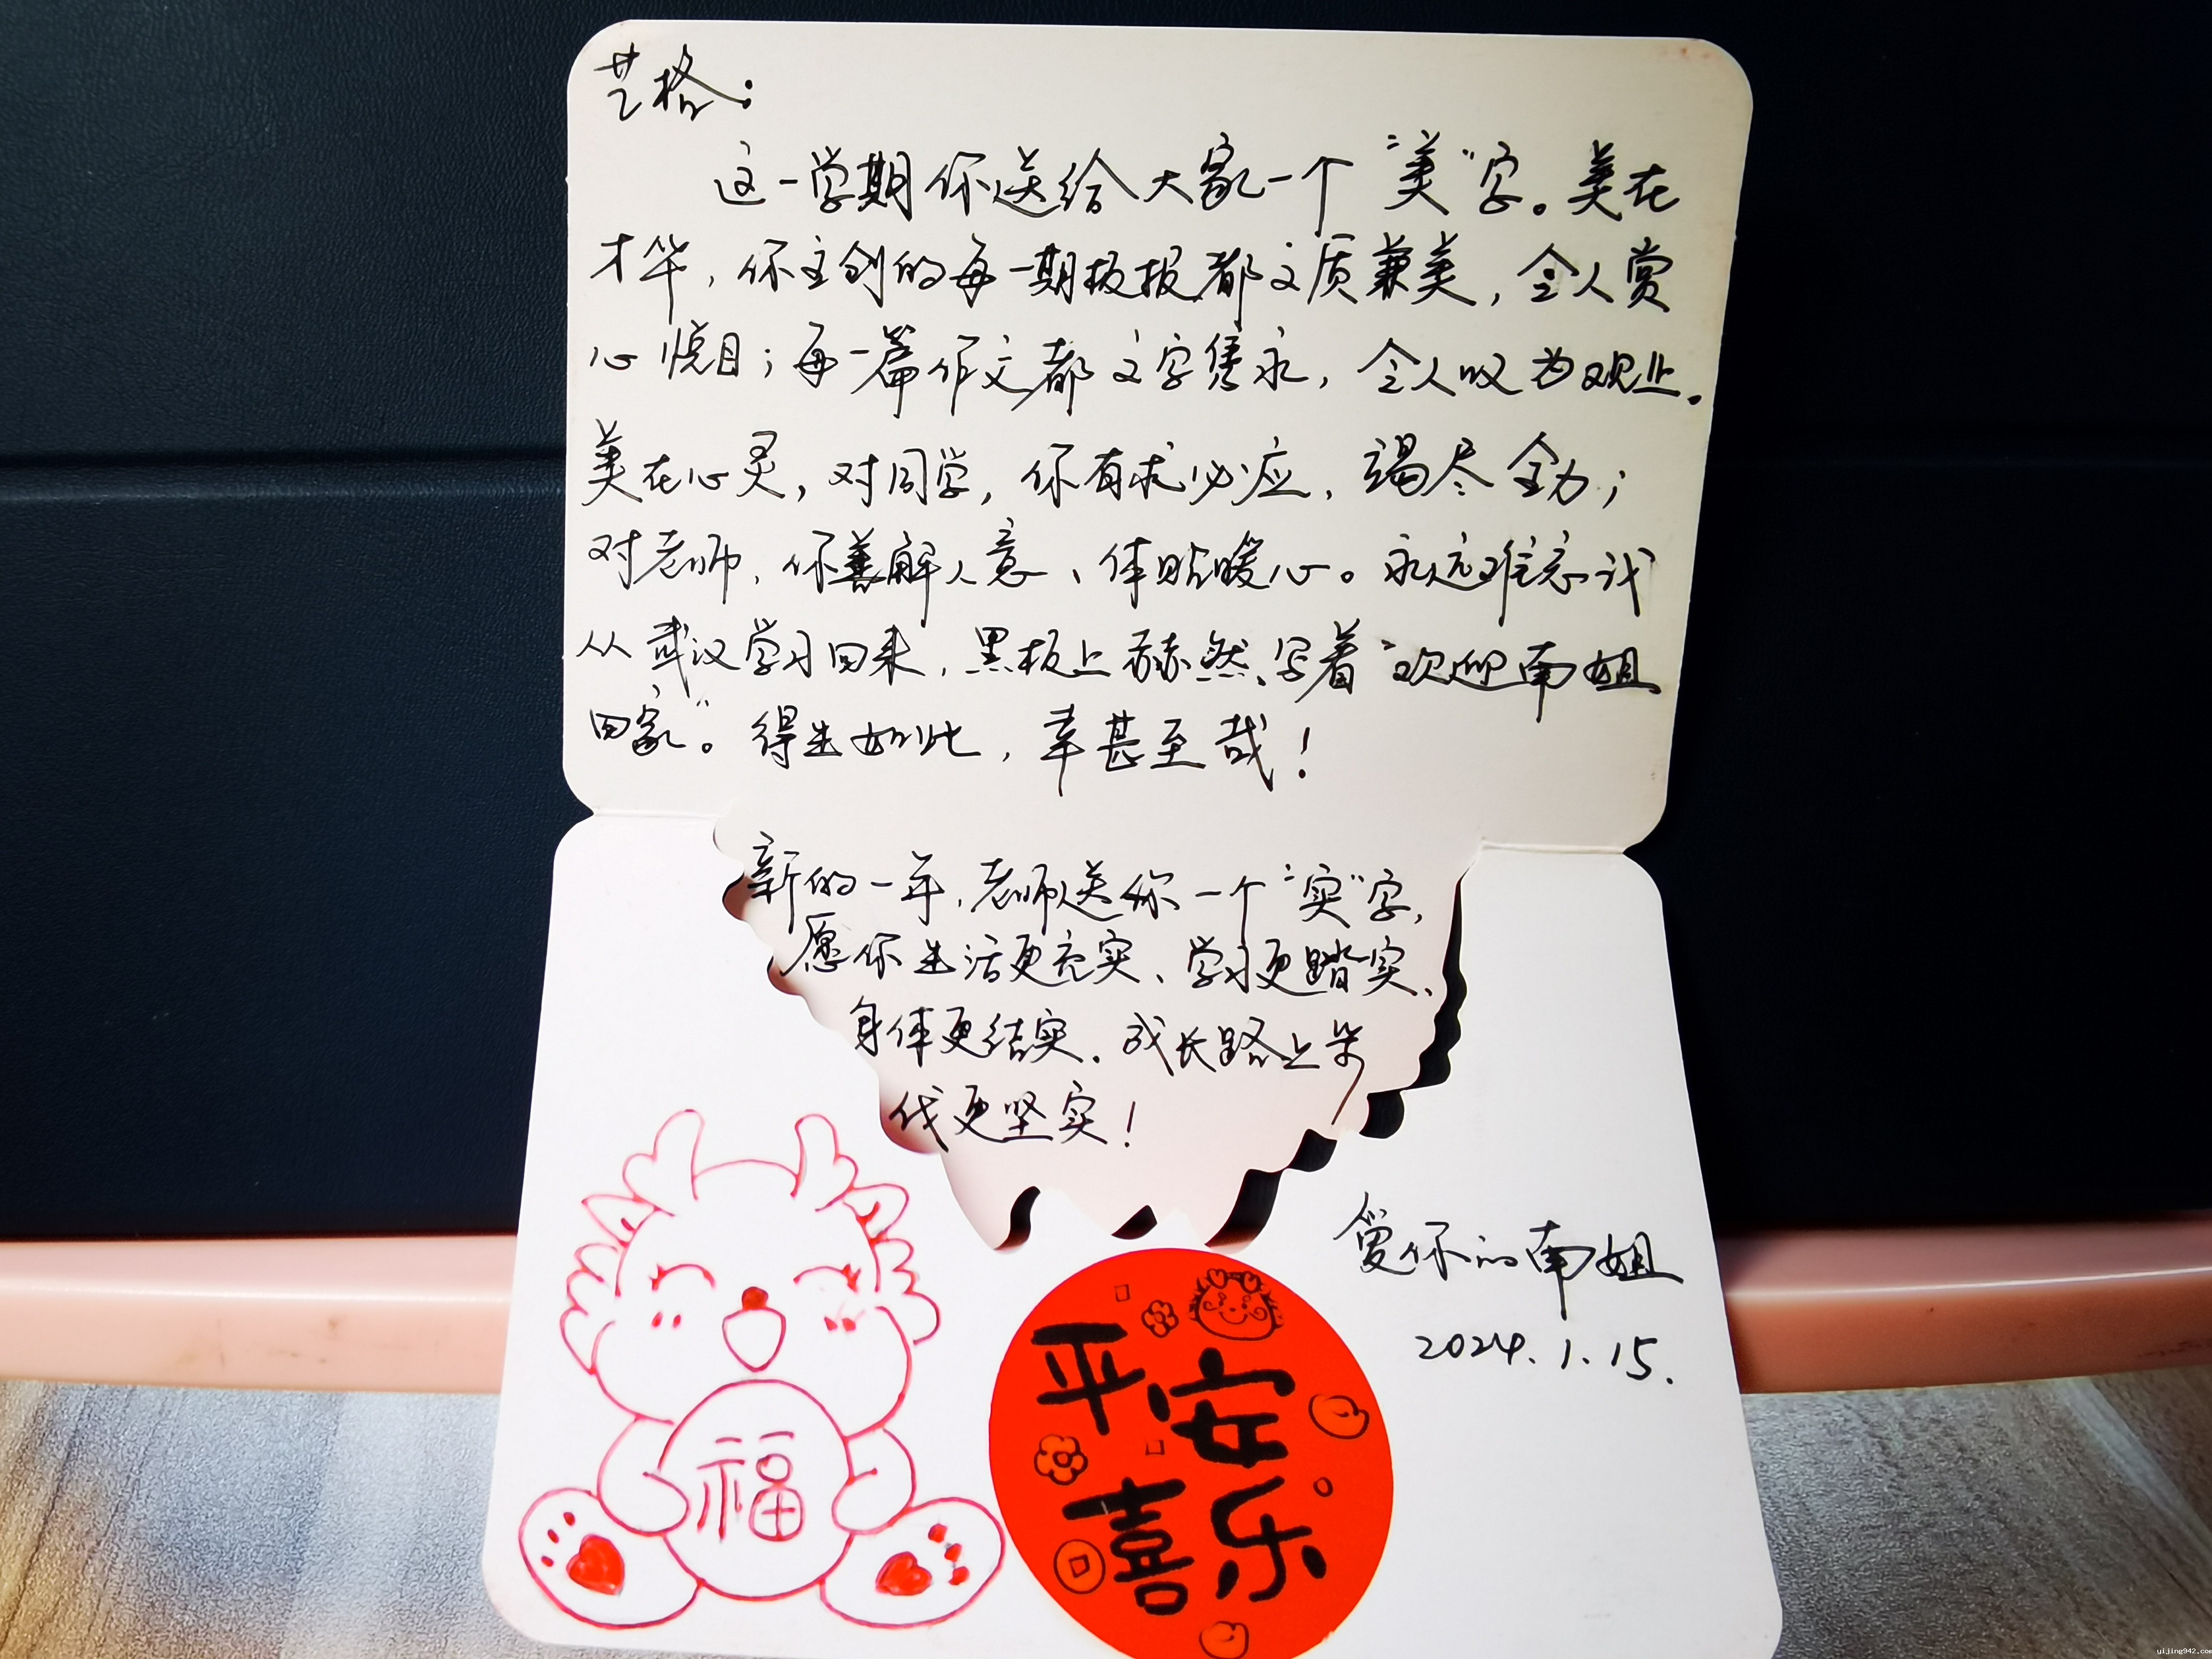 艺格：
这一学期你送给大家一个“美”字。美在
才华，你主创的每一期板报都文质兼美，令人赏
心悦目；每一篇作文都文字隽永，令人叹为观止。
美在心灵，对同学，你有求必应，竭尽全力；
对老师，你善解人意、体贴暖心。永远难忘我
从武汉学习回来，黑板上赫然写着“欢迎南姐
回家”。得生如此，幸甚至哉！
新的一年，老师送你一个“实”字，
愿你生活更充实、学习更踏实、
身体更结实。成长路上步
伐更坚实！
爱你的南姐
2024.1.15.
福
平安
喜乐
yijing942.com